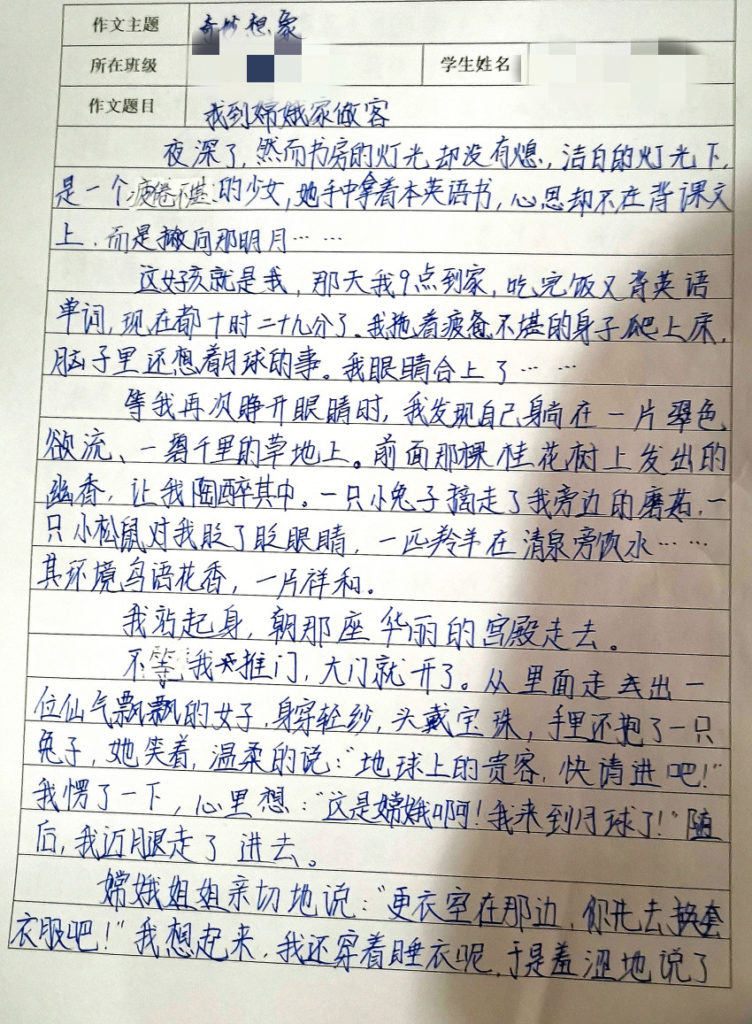 作文主题 奇妙想象
所在班级 学生姓名
作文题目 我到嫦娥家做客
夜深了，然而书房的灯光却没有熄，洁白的灯光下，
是一个疲倦不堪的少女，她手中拿着本英语书，心思却不在背课文
上，而是撇向那明月……
这女孩就是我，那天我9点到家，吃完饭又背英语
单词，现在都十时二十九分了。我拖着疲惫不堪的身子爬上床，
脑子里还想着月球的事。我眼睛合上了……
等我再次睁开眼睛时，我发现自己身躺在一片翠色
欲流、一碧千里的草地上。前面那棵桂花树上发出的
幽香，让我陶醉其中。一只小兔子摘走了我旁边的蘑菇，一
只小松鼠对我眨了眨眼睛，一匹羚羊在清泉旁饮水……
其环境鸟语花香，一片祥和。
我站起身，朝那座华丽的宫殿走去。
不等我推门，大门就开了。从里面走出一
位仙气飘飘的女子，身穿轻纱，头戴宝珠，手里还抱了一只
兔子，她笑着，温柔的说：“地球上的贵客，快请进吧！”
我愣了一下，心里想：“这是嫦娥啊！我来到月球了！”随
后，我迈腿走了进去。
嫦娥姐姐亲切地说：“更衣室在那边，你先去换套
衣服吧！”我想起来，我还穿着睡衣呢，于是羞涩地说了